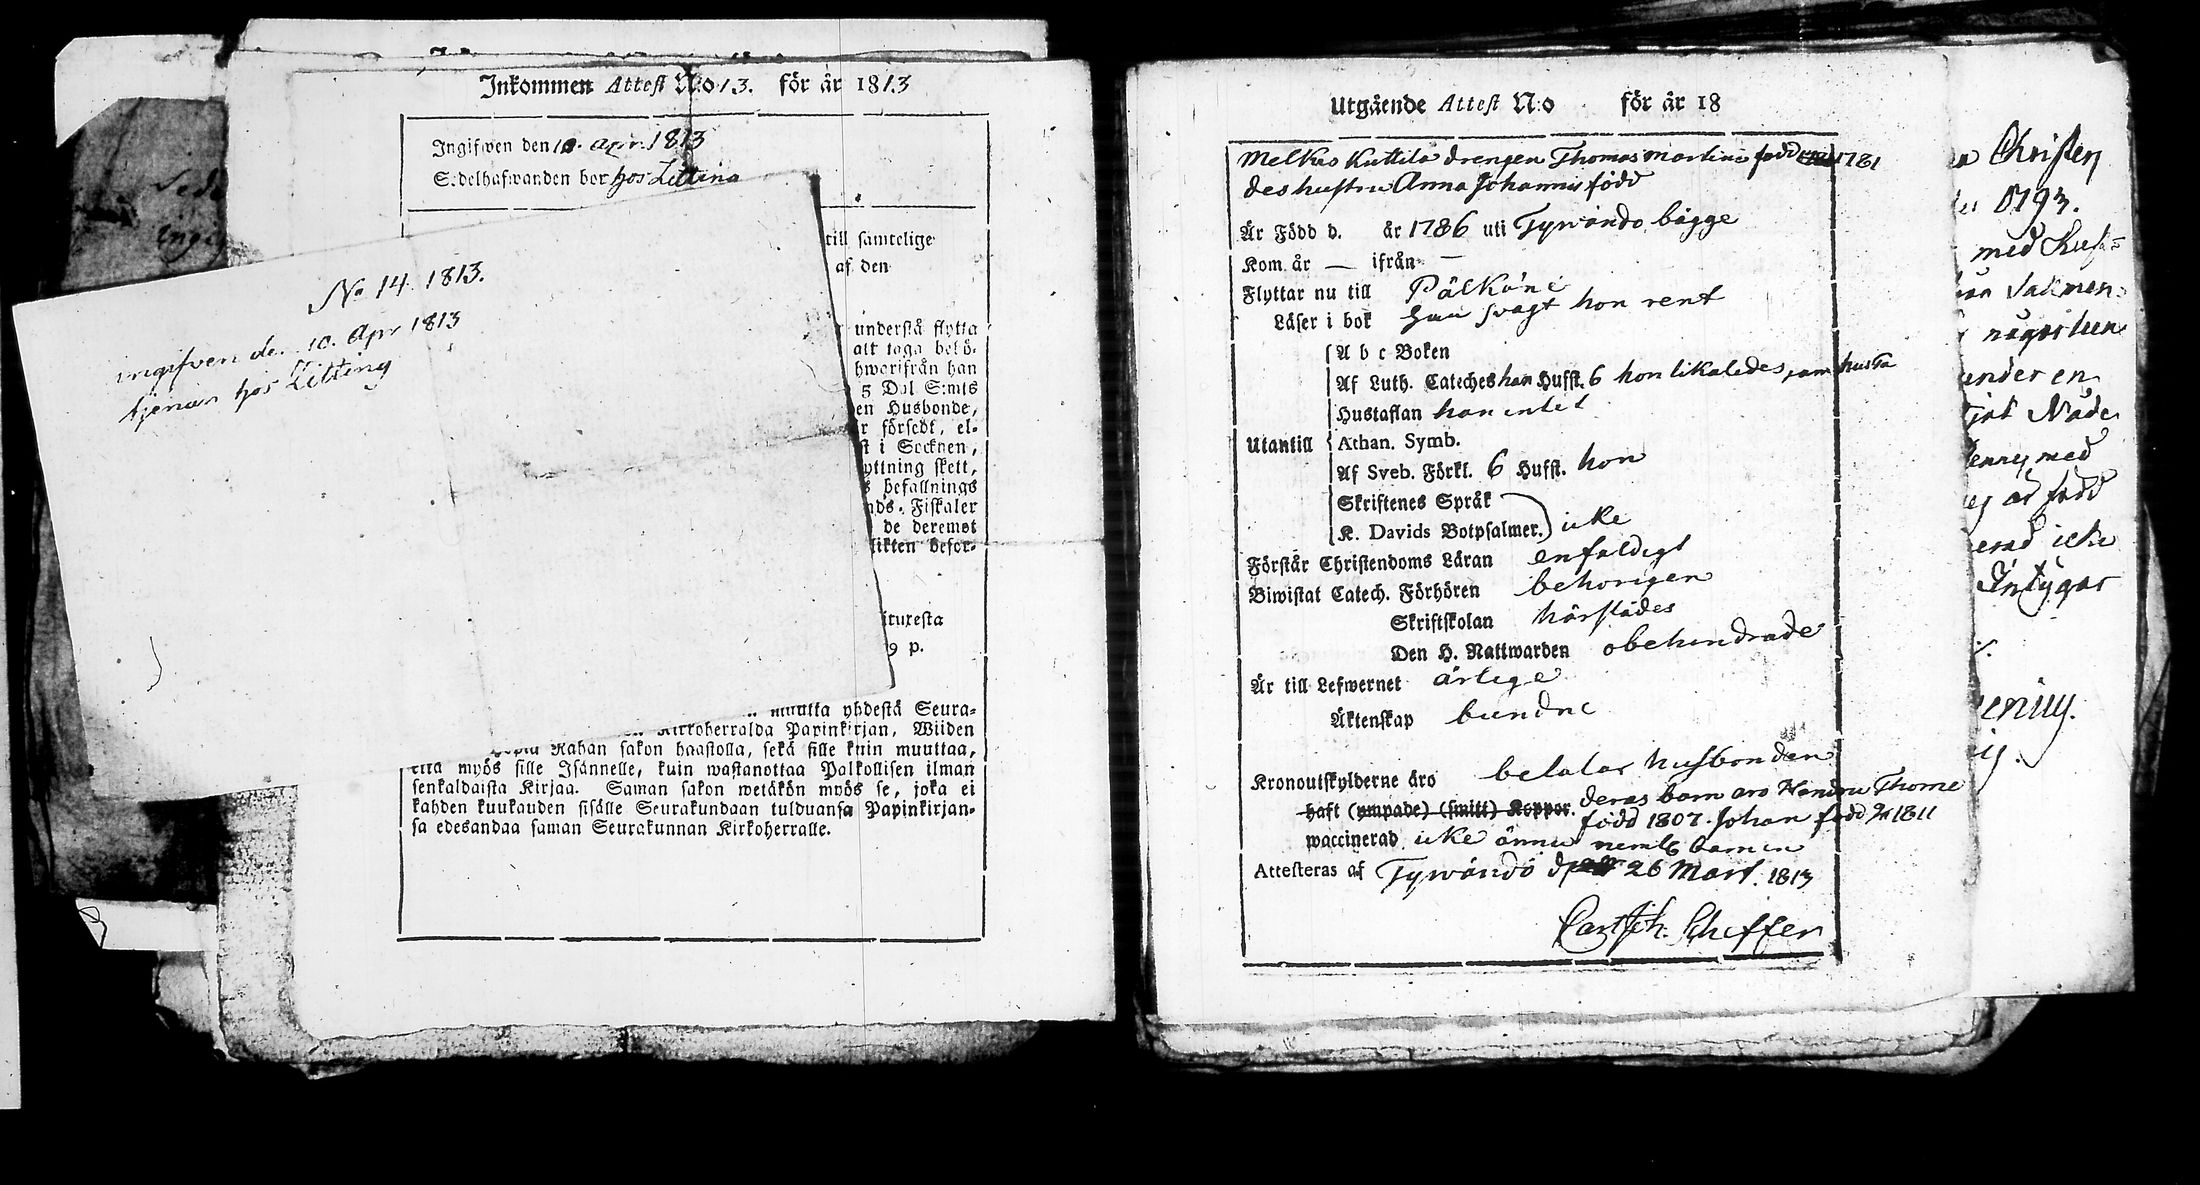 Inkommen Attest N:o 13. för år 1813
Ingifwen den 10. Apr. 1813
Sedelhafwanden bor hos Litting
till samtelige
af den
understå flytta
att taga behö-
hworifrån han
5 Dal S:mts
en Husbonde,
r försedt, el-
st i Socknen,
yttning skett,
s befallnings
nds-Fiskaler
de deremot
likten befor-
9 p.
muutta yhdestä Seura-
Kirkoherralda Papinkirjan, Wiiden
Rahan sakon haastolla, sekä sille kuin muuttaa,
että myös sille Isännelle, kuin wastanottaa Palkollisen ilman
senkaldaista Kirjaa. Saman sakon wetäkön myös se, joka ei
kahden kuukauden sisälle Seurakundaan tulduansa Papinkirjan-
sa edesandaa saman Seurakunnan Kirkoherralle.
No 14. 1813.
ingifven de. 10. Apr 1813
tjenar hos Litting
Utgående Attest N:o för år 18
Melkas Kuttila drengen Thomas Martini född 1781
des hustru Anna Johannis född
Är Född d. år 1786 uti Tywändö bägge
Kom år — ifrån —
Flyttar nu till Pälkäne
Läser i bok han svagt hon rent
A b c Boken
Af Luth. Cateches han Hufst. 6 hon likaledes, samt husta
Hustaflan han intet
Utantill Athan. Symb.
Af Sveb. Förkl. 6 Hufst. hon
Skriftenes Språk
K. Davids Botpsalmer. icke
Förstår Christendoms Läran enfaldigt
Biwistat Catech. Förhören behörigen
Skriftskolan härstädes
Den H. Nattwarden obehindrade
Är till Lefwernet ärlige
Äktenskap bundne
Kronoutskylderne äro betalar husbonden
haft (ympade) (smitt) Koppor. deras barn äro Thome
född 1807. Johan född 1811
waccinerad icke ännu neml. barnen
Attesteras af Tywändö d 26 Mart. 1813
Carl Joh. Scheffer
Christen
1793.
med Hus-
under en
Nåde
med
född
icke
Intygar